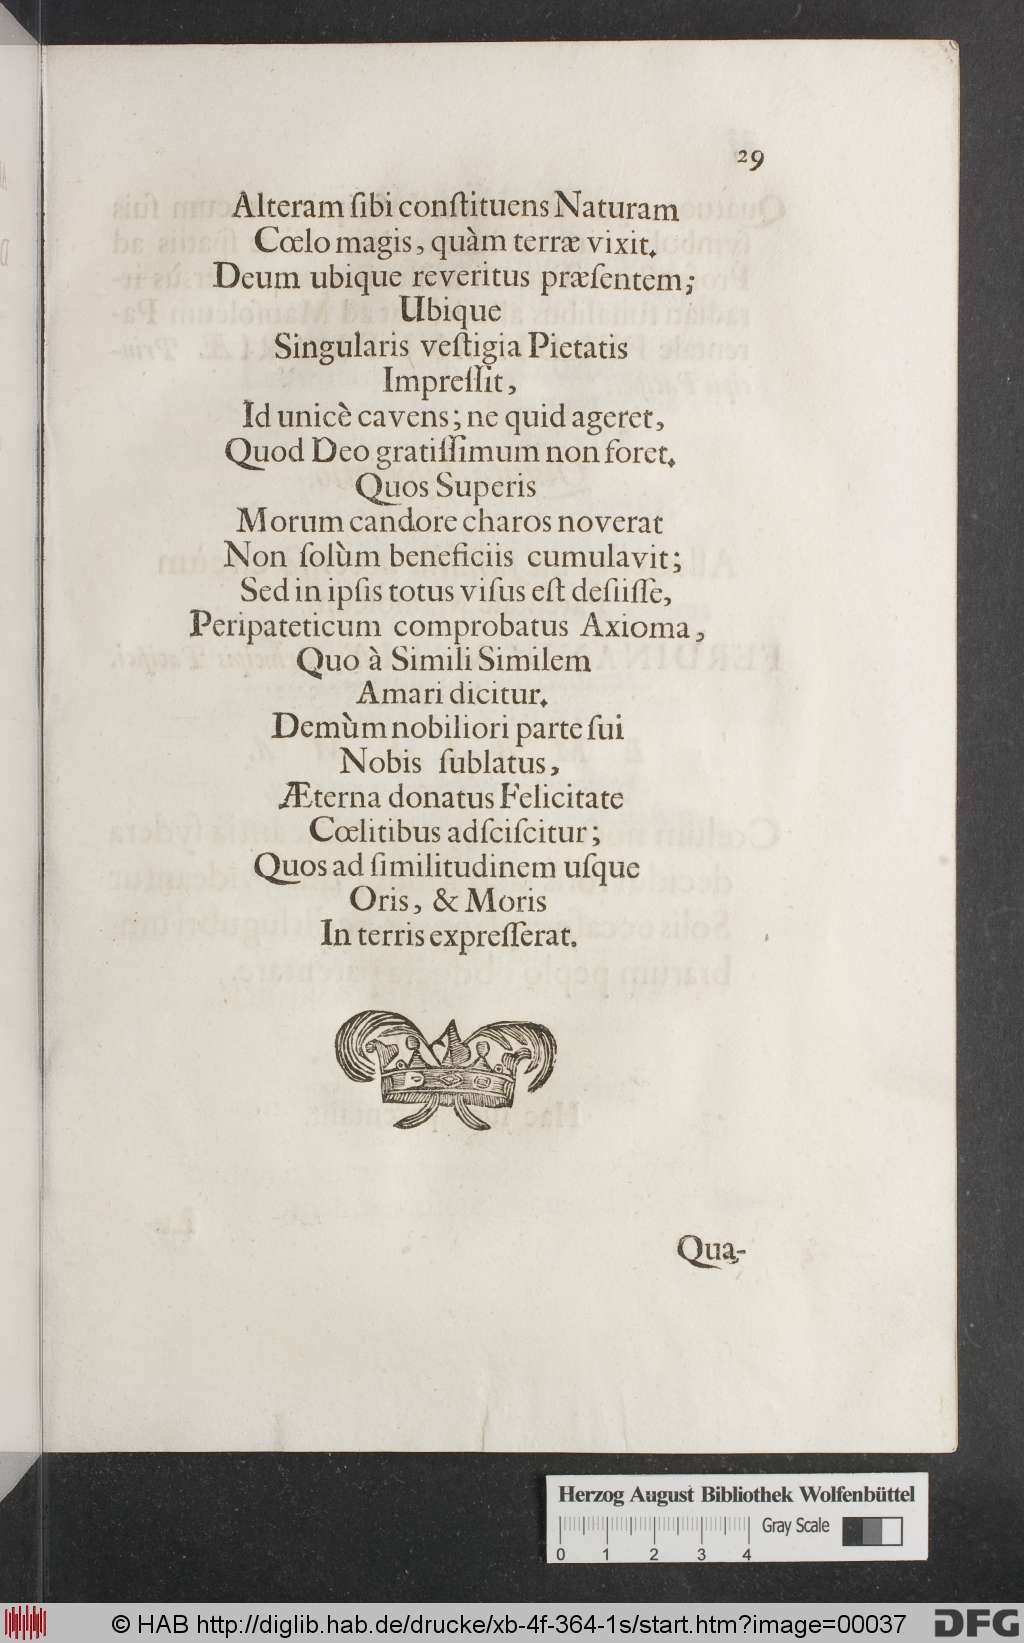 29
Alteram ſibi conſtituens Naturam
Cœlo magis, quàm terræ vixit.
Deum ubique reveritus præſentem;
Ubique
Singularis veſtigia Pietatis
Impreſſit,
Id unicè cavens; ne quid ageret,
Quod Deo gratiſſimum non foret.
Quos Superis
Morum candore charos noverat
Non ſolùm beneficiis cumulavit;
Sed in ipſis totus viſus eſt deſiiſſe,
Peripateticum comprobatus Axioma,
Quo à Simili Similem
Amari dicitur.
Demùm nobiliori parte ſui
Nobis ſublatus,
Æterna donatus Felicitate
Cœlitibus adſciſcitur;
Quos ad ſimilitudinem uſque
Oris, & Moris
In terris expreſſerat.
Qua-
Herzog August Bibliothek Wolfenbüttel
Gray Scale
0 1 2 3 4
© HAB http://diglib.hab.de/drucke/xb-4f-364-1s/start.htm?image=00037
DFG